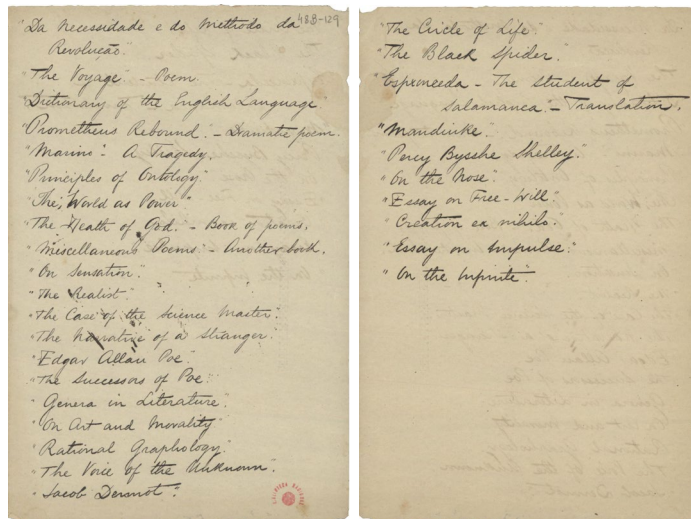 "Da Necessidade e do Methodo da
Revolução."
48B-129
"The Voyage" - Poem.
"Dictionary of the English Language"
"Prometheus Rebound." - Dramatic poem.
"Marino": A Tragedy.
"Principles of Ontology."
"The World as Power"
"The Death of God. - Book of poems.
"Miscellaneous Poems" - Another book.
"On Sensation."
"The Realist."
"The Case of the Science Master".
"The Narrative of a Stranger.
"Edgar Allan Poe".
"The Successors of Poe."
"Genera in Literature".
"On Art and Morality"
"Rational Graphology."
"The Voice of the Unknown".
"Jacob Dermot".
"The Circle of Life"
"The Black Spider.
"Espronceda - The Student of
Salamanca" - Translation.
"Mandinke.
"Percy Bysshe Shelley".
"On the Nose".
"Essay on Free-Will."
"Creation ex nihilo.
"Essay on Impulse".
"On the Infinite".